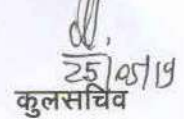 25/05/19
कुलसचिव